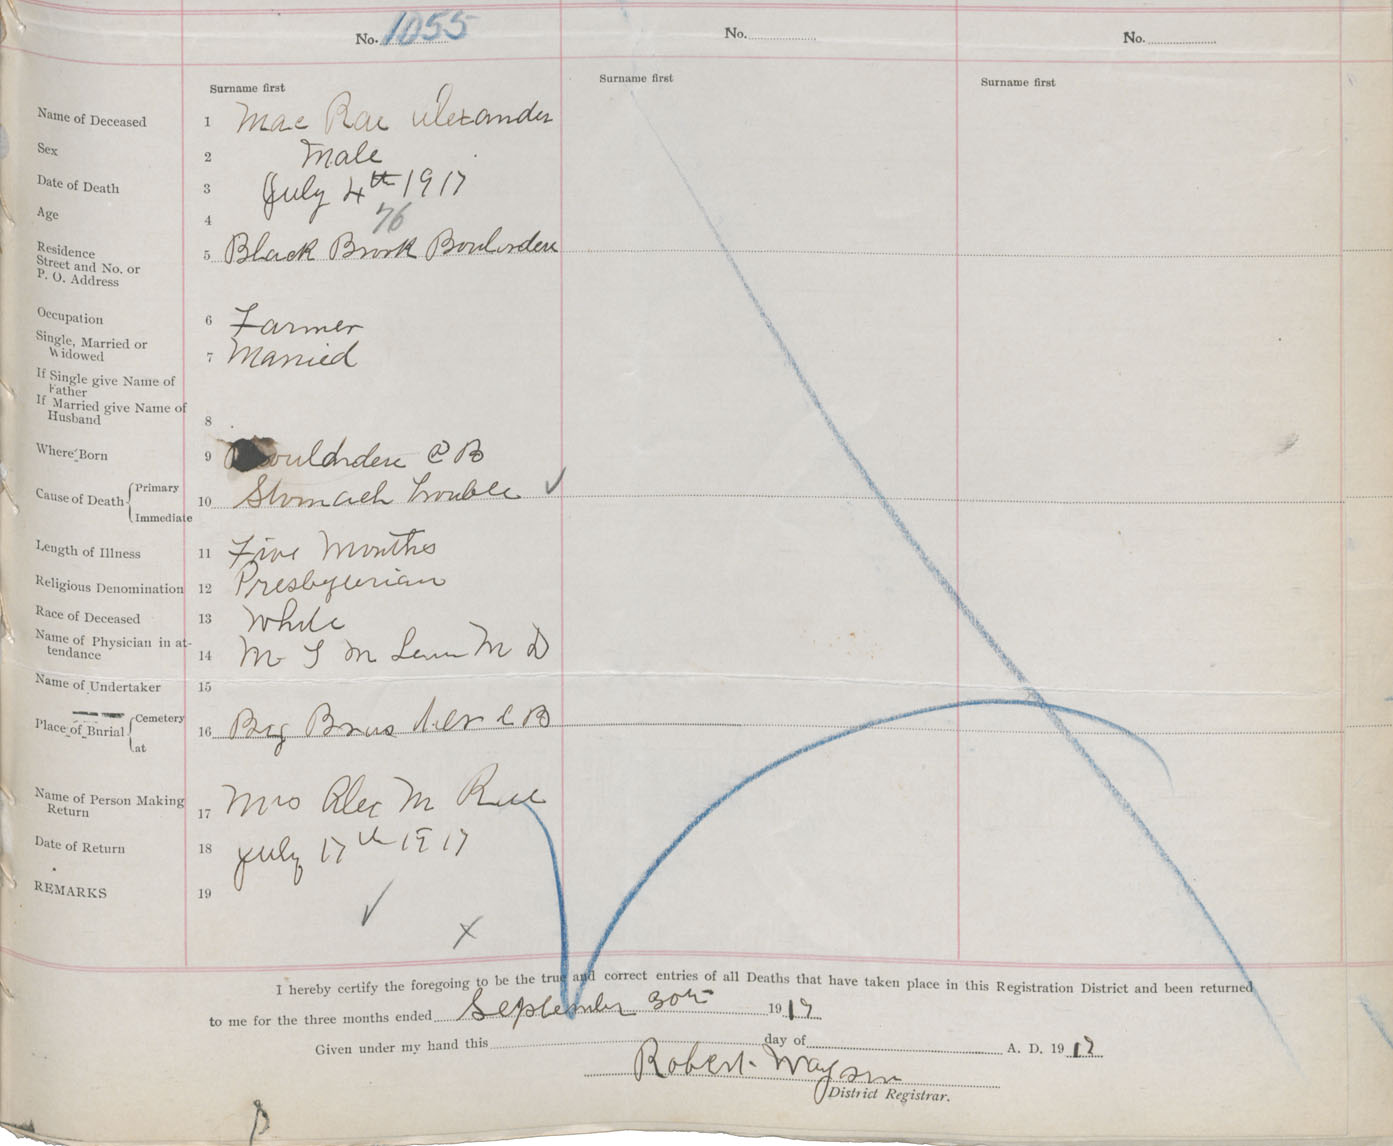 No. 1055 No. No.
Surname first Surname first Surname first
Name of Deceased 1 Mac Rae Alexander
Sex 2 Male
Date of Death 3 July 4th 1917
Age 4 76
Residence
Street and No. or
P. O. Address 5 Black Brook Boulardere
Occupation 6 Farmer
Single, Married or
Widowed 7 Married
If Single give Name of
Father
If Married give Name of
Husband 8
Where Born 9 Boulardere C B
Cause of Death Primary
Immediate 10 Stomach Trouble ✓
Length of Illness 11 Five Months
Religious Denomination 12 Presbyterian
Race of Deceased 13 White
Name of Physician in at-
tendance 14 M D
Name of Undertaker 15
Place of Burial Cemetery
at 16 Big Bras C B
Name of Person Making
Return 17 Mrs Alex M Rae
Date of Return 18 July 17th 1917
REMARKS 19
✓ X
I hereby certify the foregoing to be the true and correct entries of all Deaths that have taken place in this Registration District and been returned
to me for the three months ended September 30th 1917
Given under my hand this day of A. D. 1917
Robert
District Registrar.